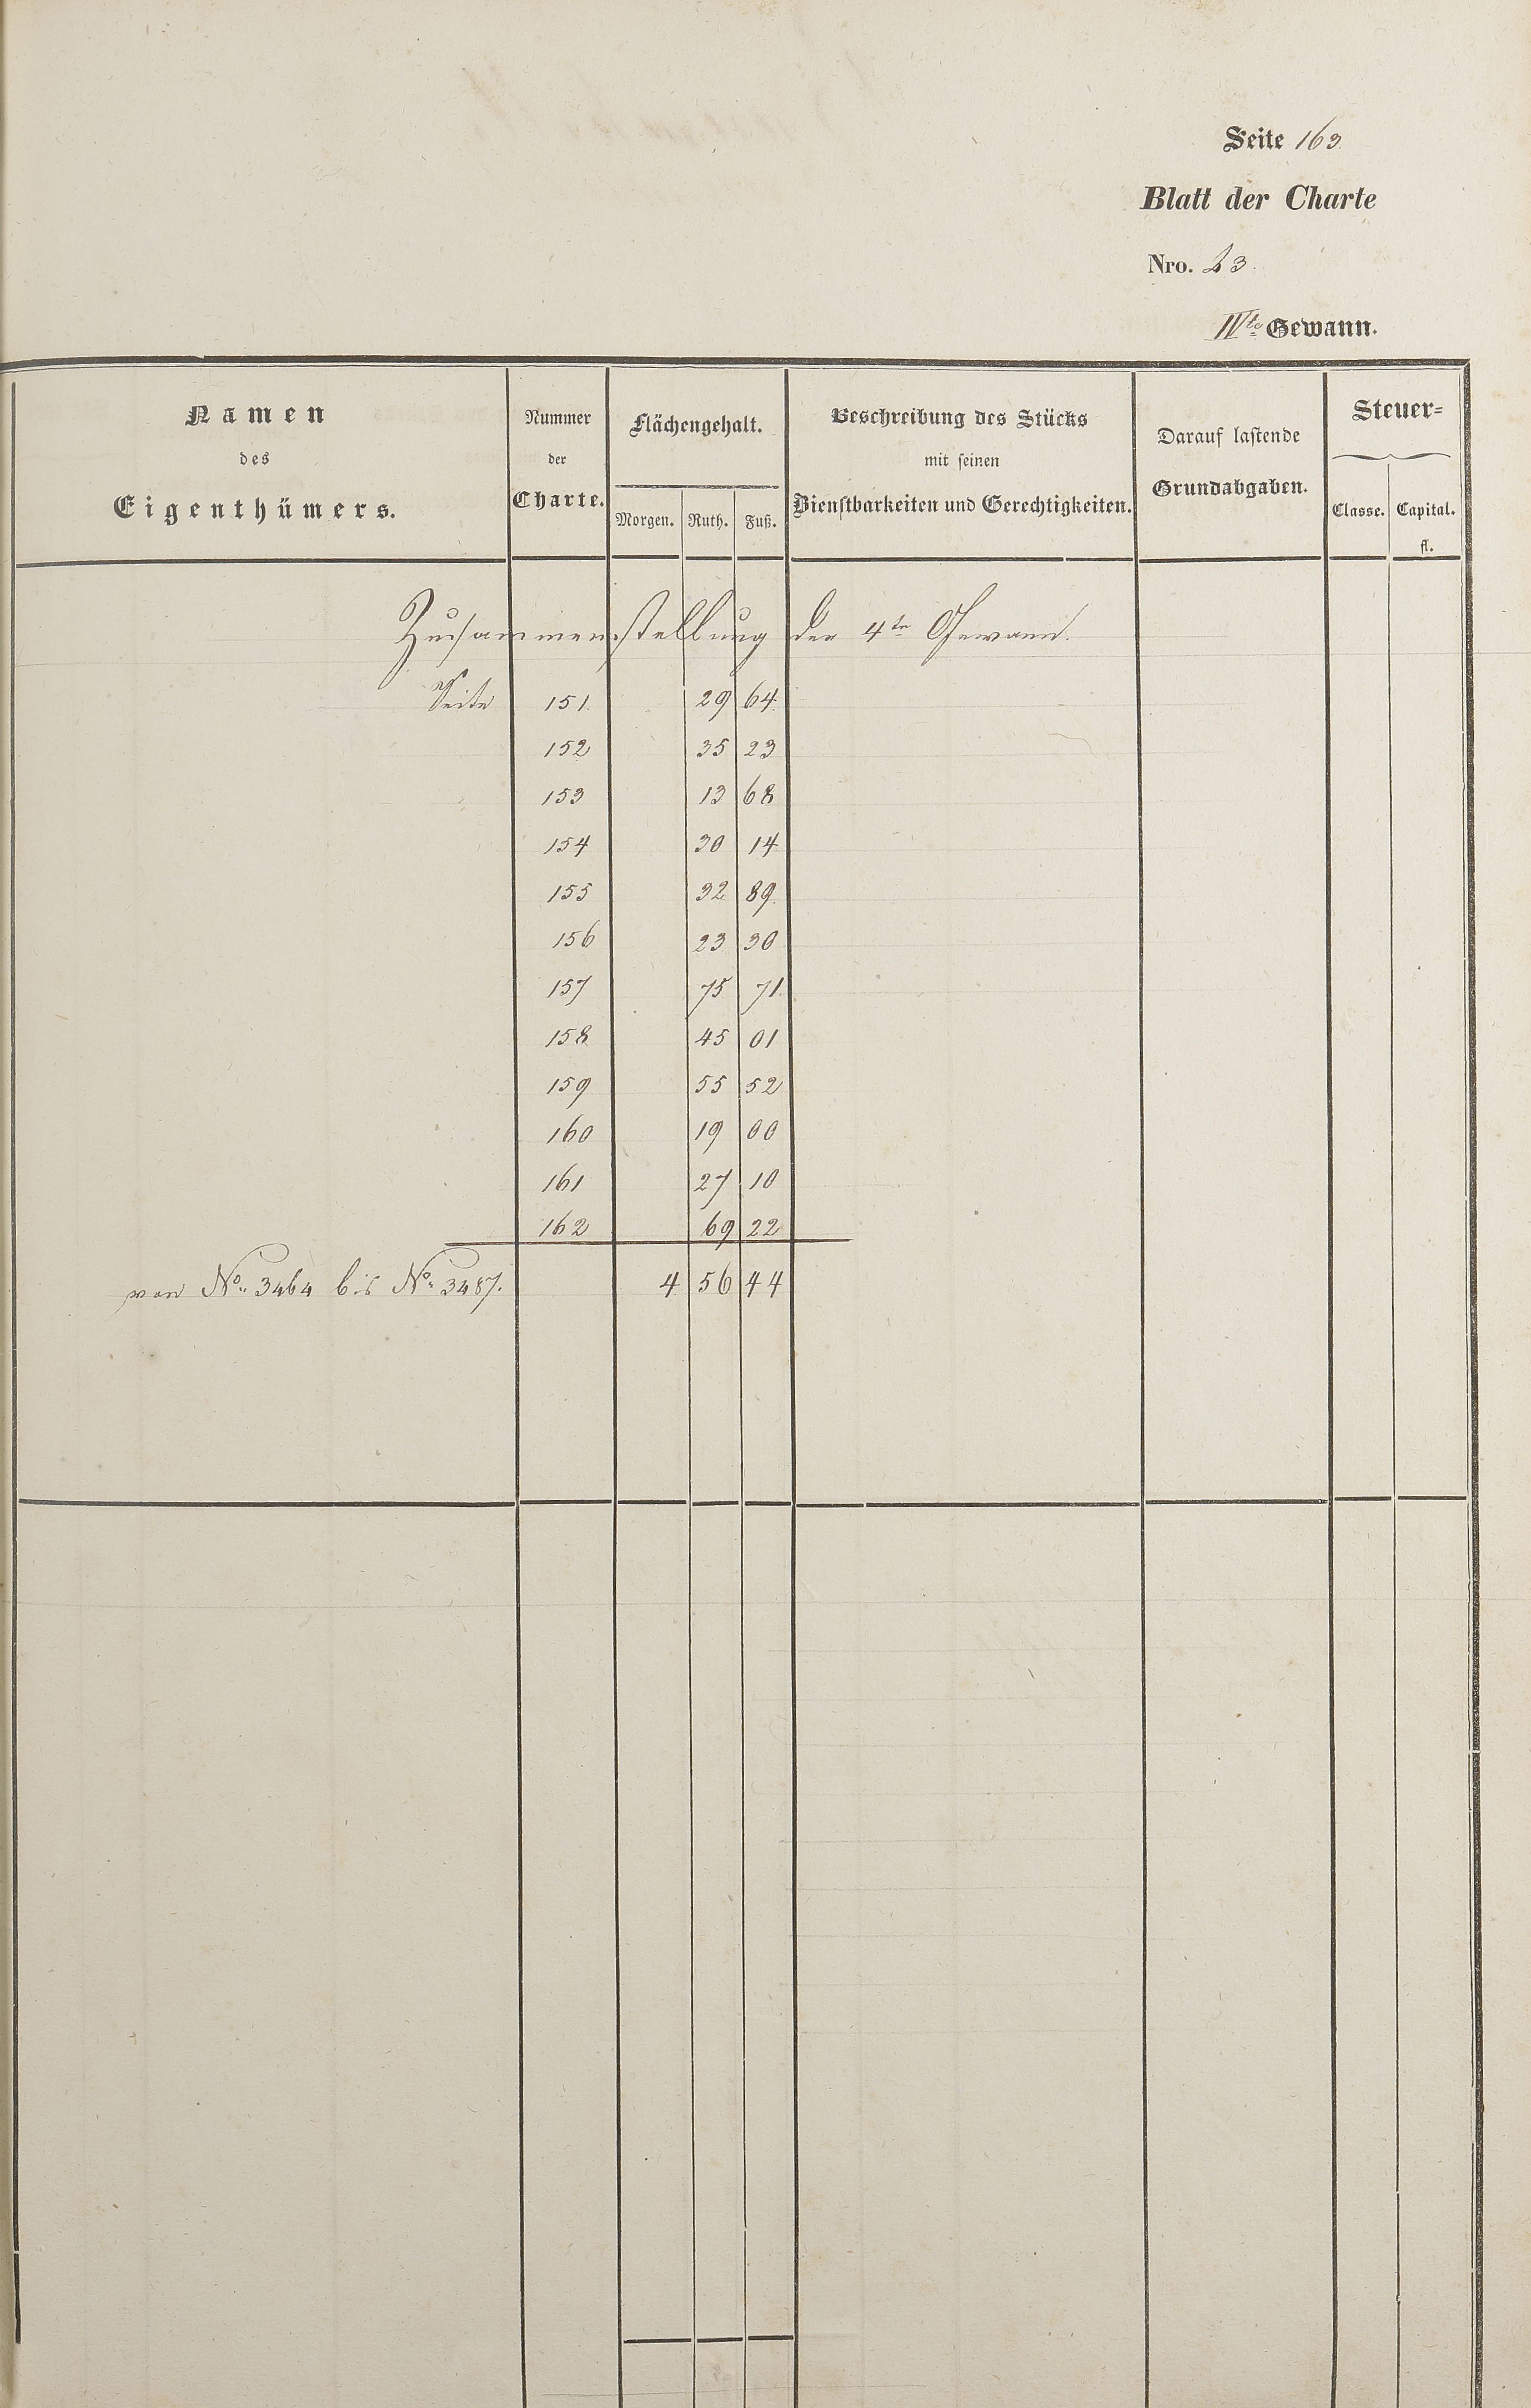 Seite 163
Blatt der Charte
Nro. 23.
IVte Gewann.
Namen
des
Eigenthümers.
Nummer
der
Charte.
Flächengehalt.
Morgen. Ruth. Fuß.
Beschreibung des Stücks
mit seinen
Dienstbarkeiten und Gerechtigkeiten.
Darauf lastende
Grundabgaben.
Steuer=
Classe. Capital.
fl.
Zusammenstellung der 4te Gewann.
Seite 151. 29 64.
152 35 23
153 13 68
154 30 14
155 32 89.
156 23 30
157 75 71.
158 45 01
159 55 52
160 19 00
161 27 10
162 69 22
von No. 3464 bis No. 3487. 4 56 44